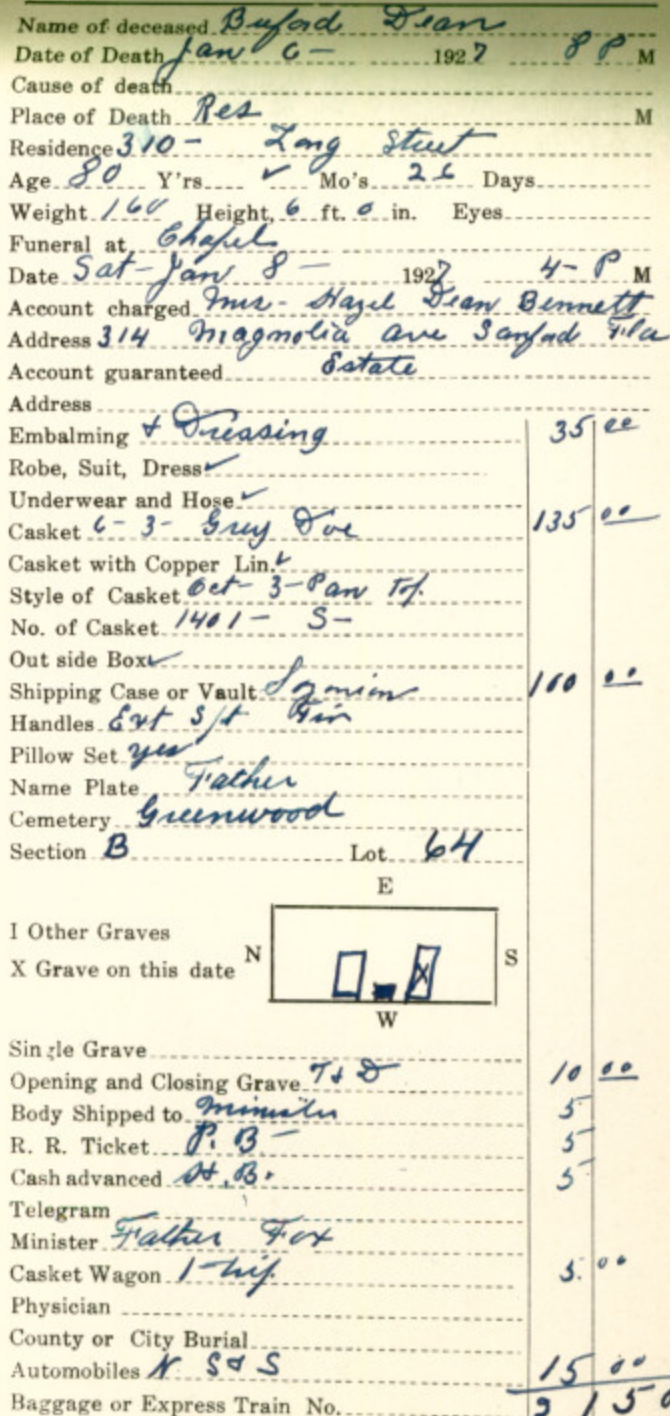 Name of deceased Buford Dean
Date of Death Jan 6 - 1927 8 P M
Cause of death
Place of Death Res M
Residence 310 - Long Street
Age 80 Y'rs ✓ Mo's 26 Days
Weight 160 Height, 6 ft. 0 in. Eyes
Funeral at Chapel
Date Sat - Jan 8 - 1927 4 - P M
Account charged Mrs - Hazel Dean Bennett
Address 314 Magnolia ave Sanford Fla
Account guaranteed Estate
Address
Embalming & Dressing 35 00
Robe, Suit, Dress ✓
Underwear and Hose ✓
Casket 6 - 3 - Grey Doe 135 00
Casket with Copper Lin. ✓
Style of Casket Oct - 3 - Pan Top
No. of Casket 1401 - S -
Out side Box ✓
Shipping Case or Vault 100 00
Handles Ext
Pillow Set yes
Name Plate Father
Cemetery Greenwood
Section B Lot 64
E
I Other Graves
X Grave on this date N X S
W
Single Grave
Opening and Closing Grave T & D 10 00
Body Shipped to Minister 5
R. R. Ticket P. B - 5
Cash advanced 5
Telegram
Minister Father Fox
Casket Wagon 1 trip. 5. 00
Physician
County or City Burial
Automobiles N S & S 15 00
Baggage or Express Train No. 315 0